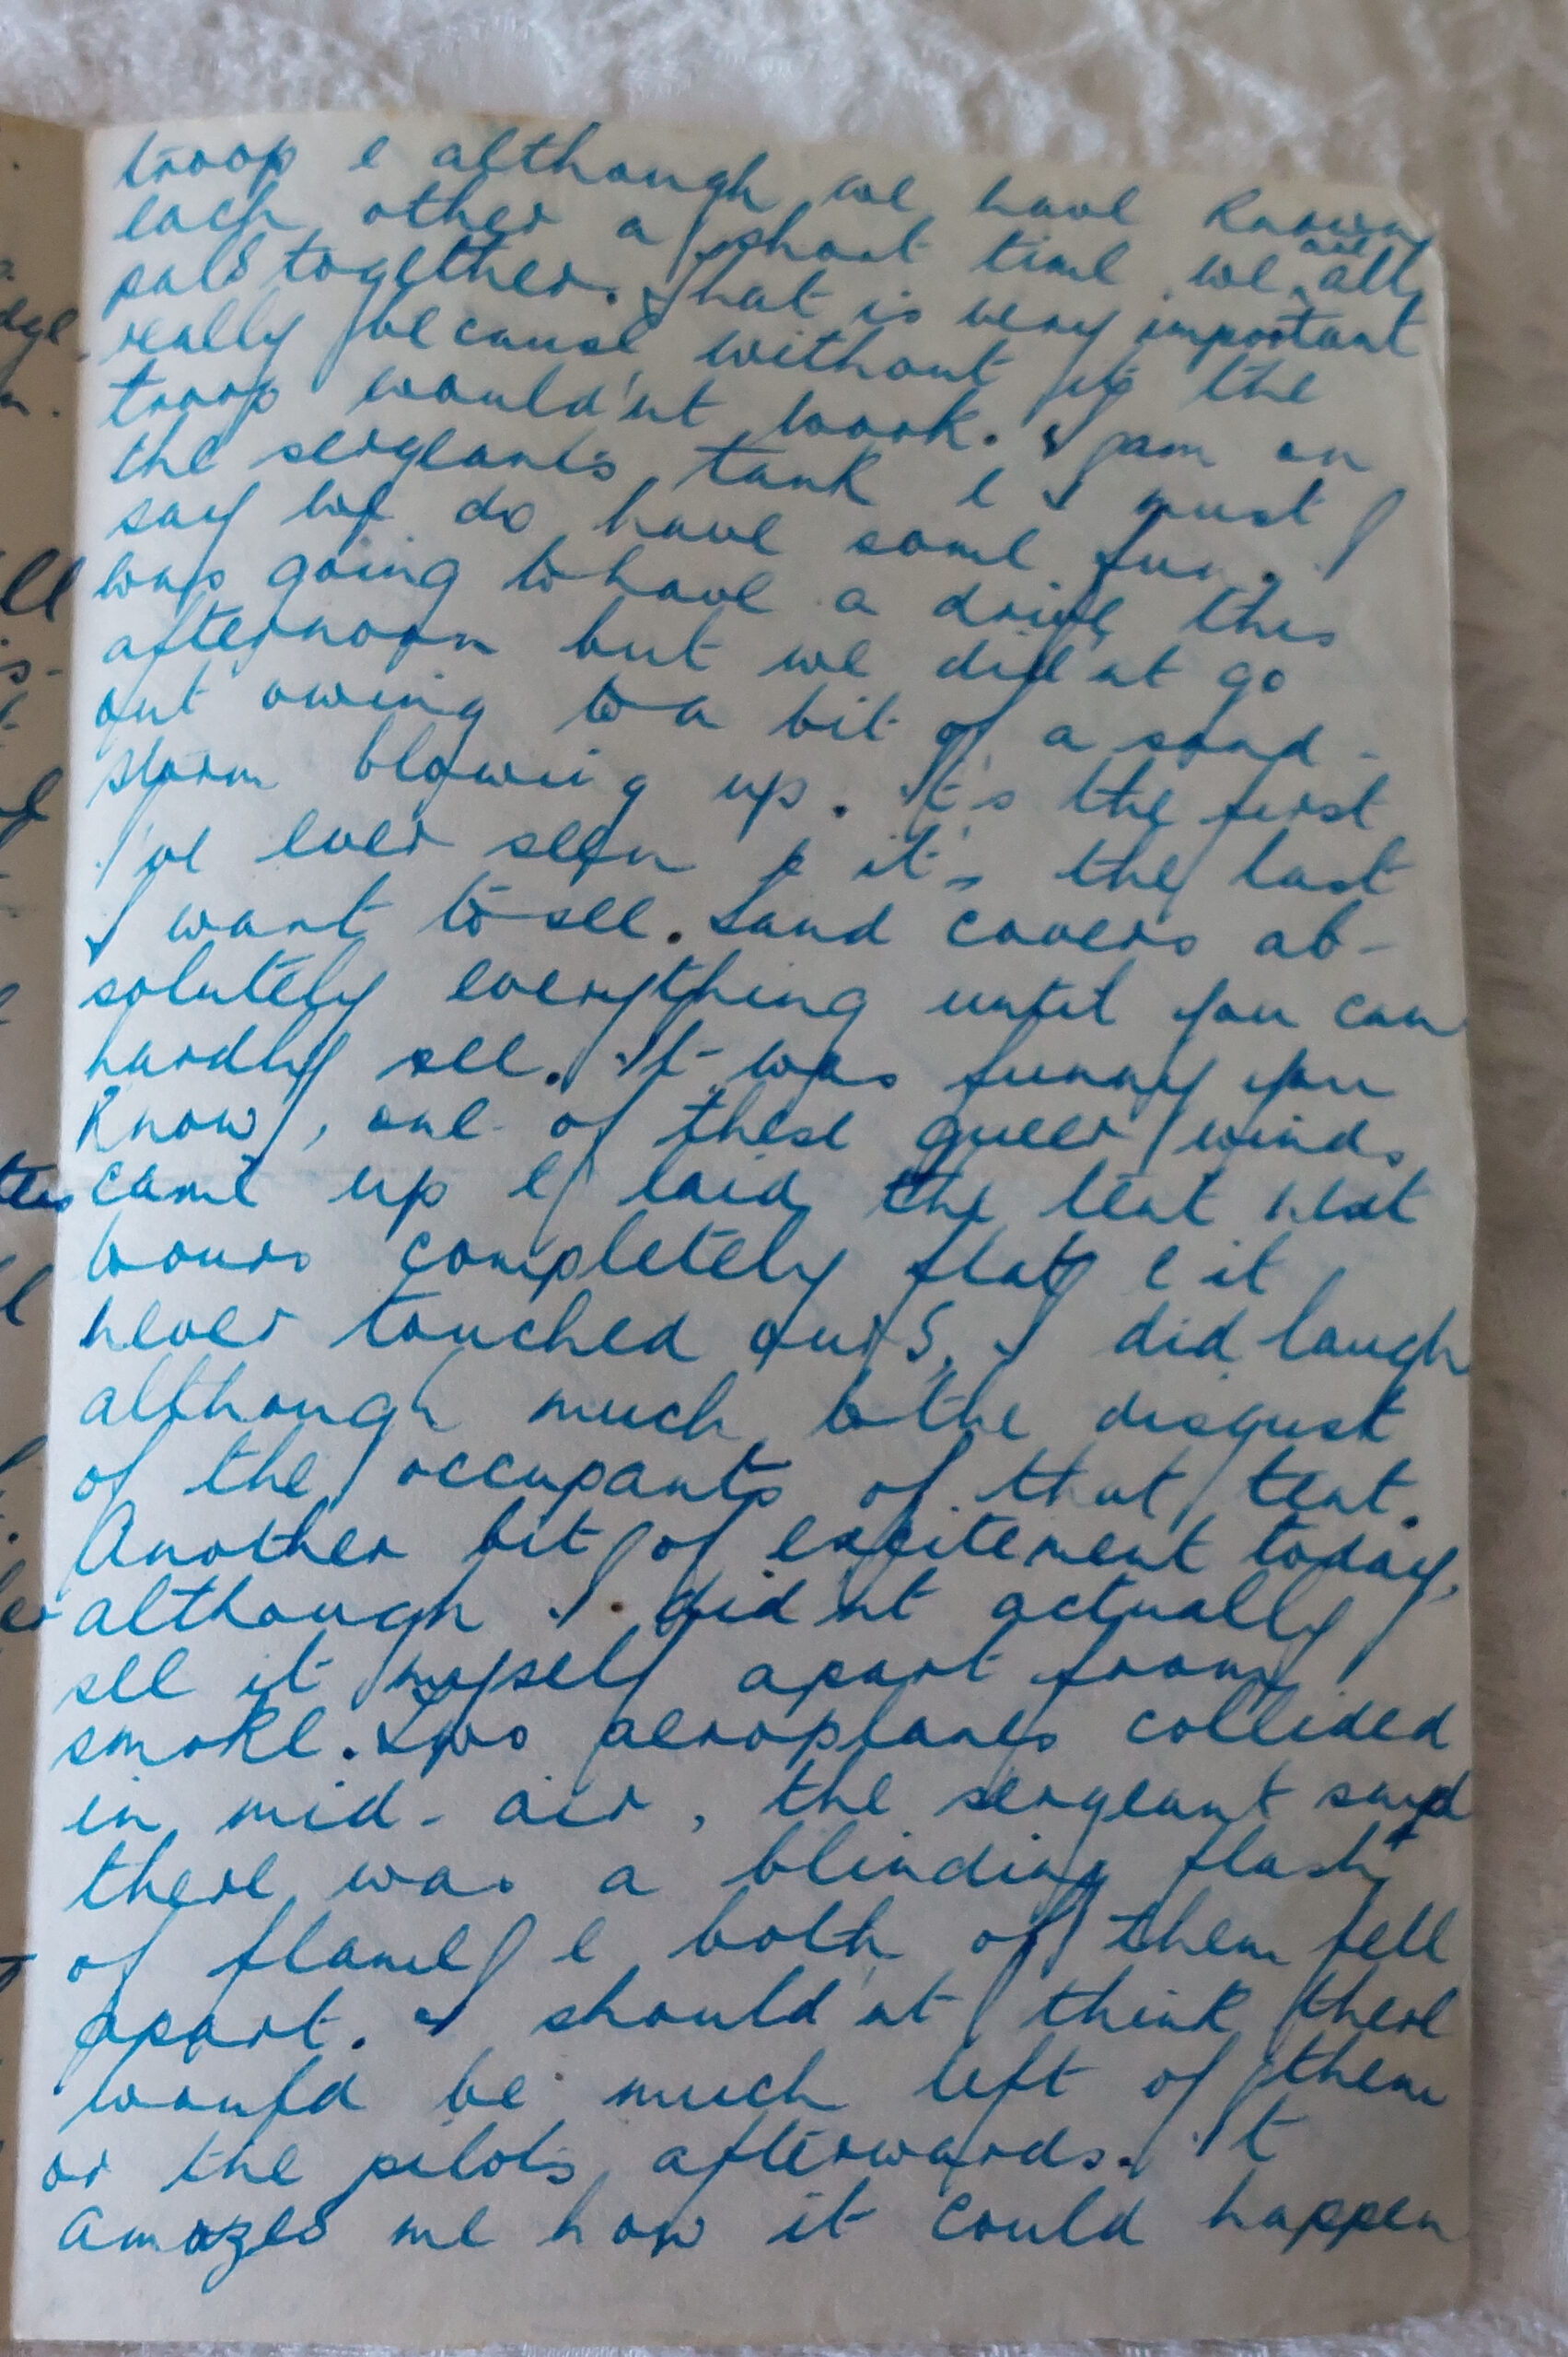 troop & although we have known
each other a short time we are all
pals together. That is very important
really because without it the
troop would'nt work. I am on
the sergeants tank & I must
say we do have some fun. I
was going to have a drive this
afternoon but we did'nt go
out owing to a bit of a sand-
storm blowing up. It's the first
I've ever seen & it's the last
I want to see. Sand covers ab-
solutely everything until you can
hardly see. It was funny you
know, one of these queer winds
came up & laid the tent next
to ours completely flat & it
never touched ours, I did laugh
although much to the disgust
of the occupants of that tent.
Another bit of excitement today,
although I did'nt actually
see it myself apart from
smoke. Two aeroplanes collided
in mid-air, the sergeant said
there was a blinding flash
of flame & both of them fell
apart. I should'nt think there
would be much left of them
or the pilots afterwards. It
amazes me how it could happen